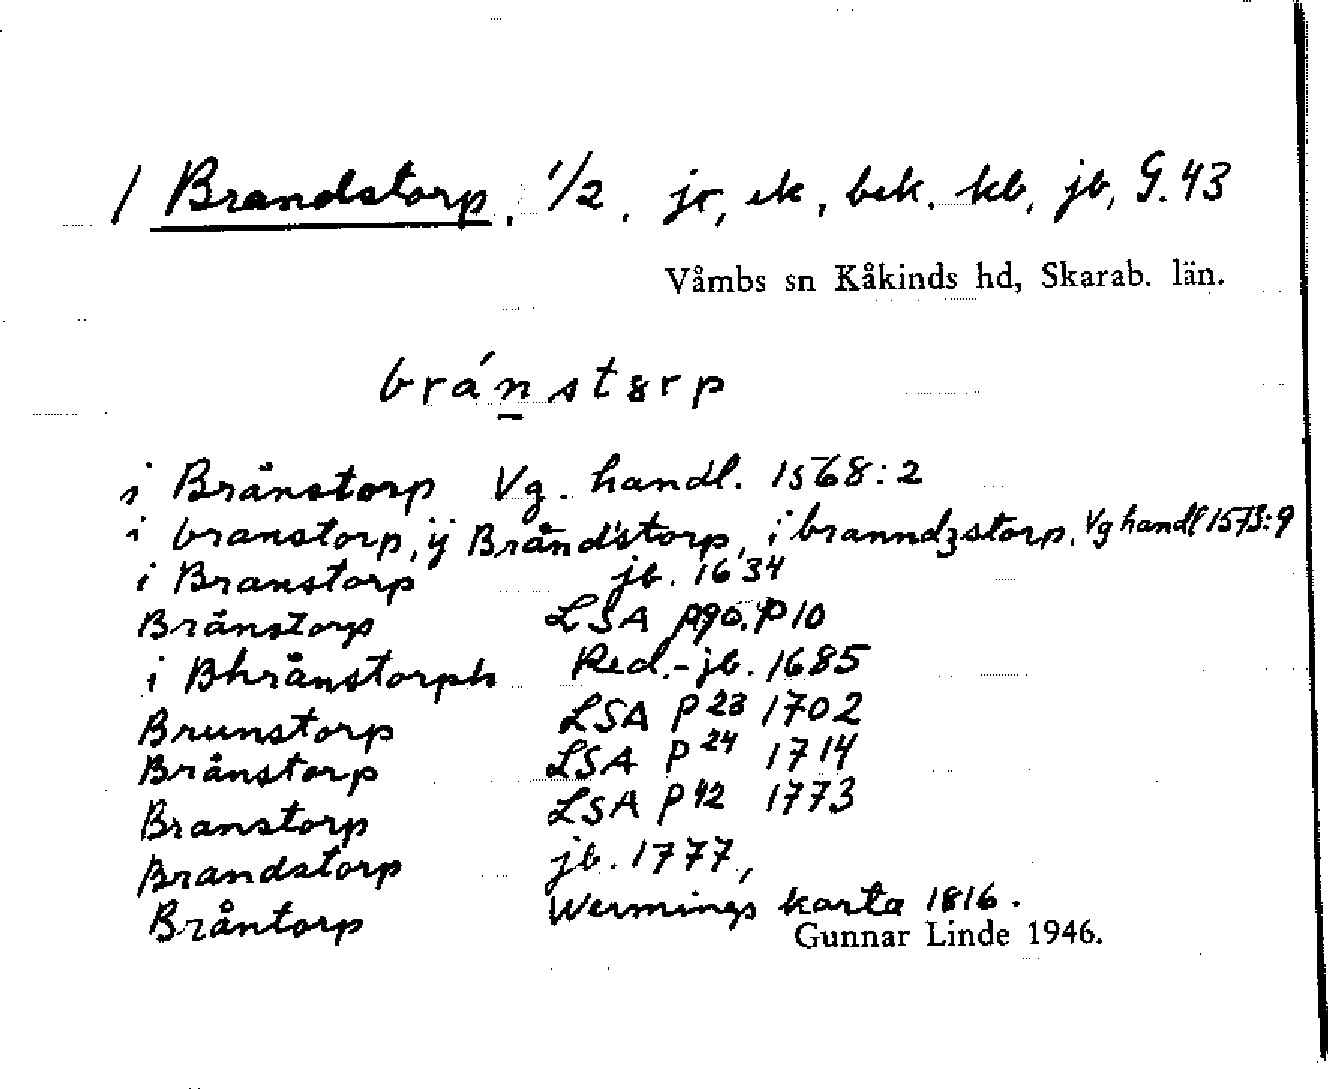 / Brandstorp, 1/2, jr, ek, bek. kb, jb, G. 43
Våmbs sn Kåkinds hd, Skarab. län.
bránstɜrp
i Brånstorp Vg. handl. 1568:2
i branstorp, ij Brånd'storp, i branndzstorp. Vg handl 1573:9
i Branstorp jb. 1634
Brånstorp LSA P10
i Bhrånstorph Red.-jb. 1685
Brunstorp LSA P 23 1702
Brånstorp LSA P 24 1714
Branstorp LSA P 42 1773
Brandstorp jb. 1777,
Bråntorp Wermings karta 1816.
Gunnar Linde 1946.